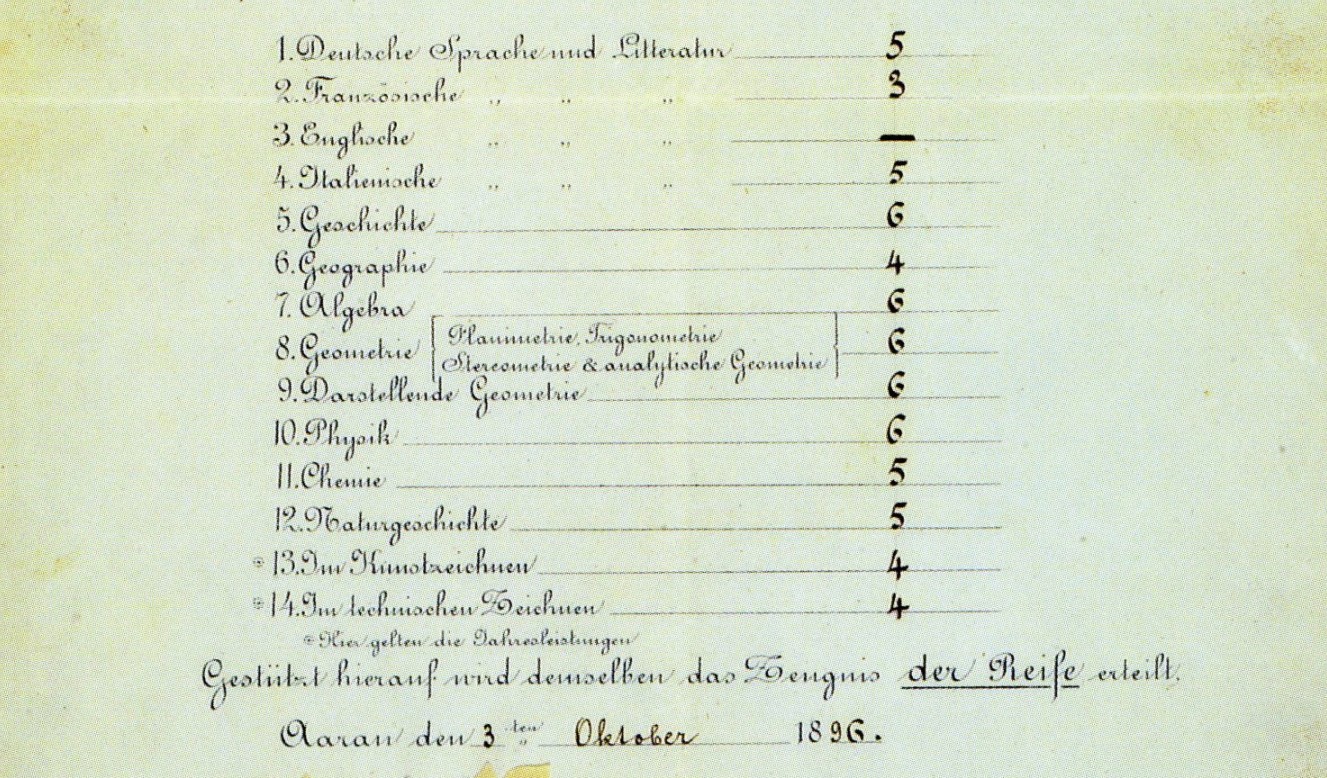 1. Deutsche Sprache und Litteratur 5
2. Französische „ „ „ 3
3. Englische „ „ „ —
4. Italienische „ „ „ 5
5. Geschichte 6
6. Geographie 4
7. Algebra 6
8. Geometrie { Planimetrie, Trigonometrie
Stereometrie & analytische Geometrie } 6
9. Darstellende Geometrie 6
10. Physik 6
11. Chemie 5
12. Naturgeschichte 5
* 13. Im Kunstzeichnen 4
* 14. Im technischen Zeichnen 4
* Hier gelten die Jahresleistungen
Gestützt hierauf wird demselben das Zeugnis der Reife erteilt.
Aarau den 3ten Oktober 1896.